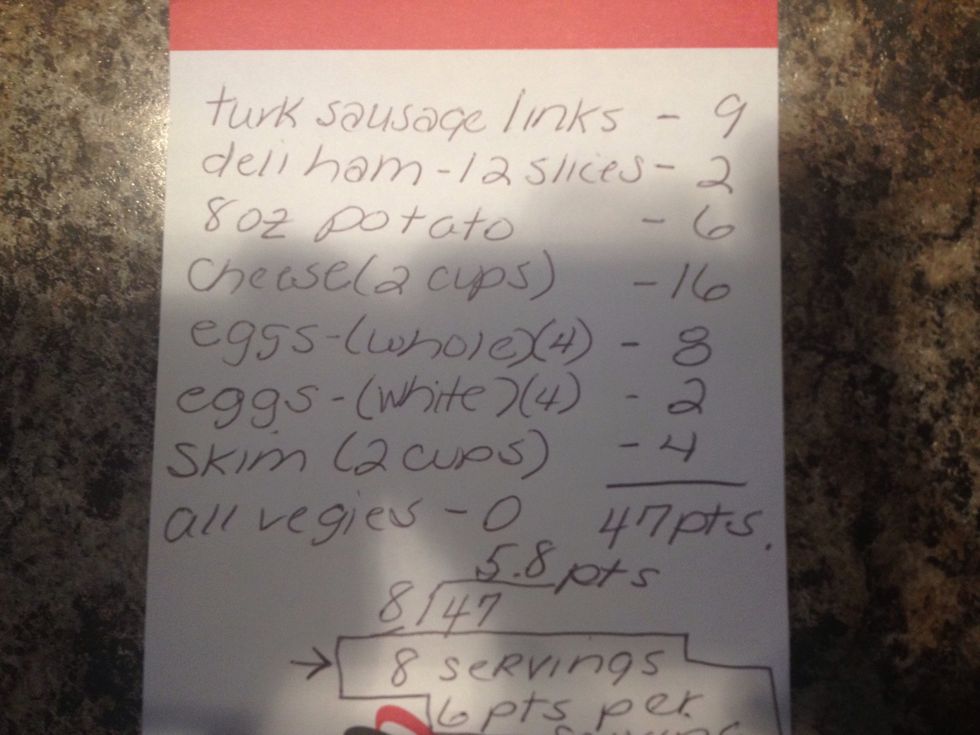 turk sausage links - 9
deli ham - 12 slices - 2
8oz potato - 6
Cheese (2 cups) - 16
eggs - (whole)(4) - 8
eggs - (white)(4) - 2
skim (2 cups) - 4
all vegies - 0 47pts.
5.8 pts
8 47
→ 8 servings
6 pts per